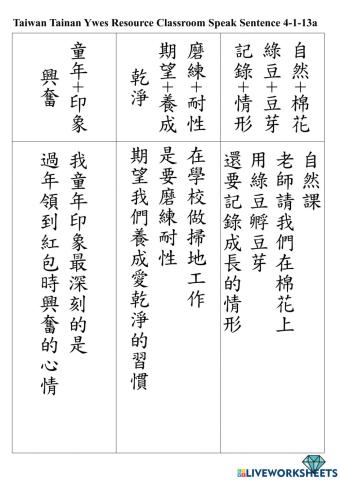 Taiwan Tainan Ywes Resource Classroom Speak Sentence 4-1-13a
自然+棉花
綠豆+豆芽
記錄+情形
自然課
老師請我們在棉花上
用綠豆孵豆芽
還要記錄成長的情形
磨練+耐性
期望+養成
乾淨
在學校做掃地工作
是要磨練耐性
期望我們養成愛乾淨的習慣
童年+印象
興奮
我童年印象最深刻的是
過年領到紅包時興奮的心情
LIVEWORKSHEETS